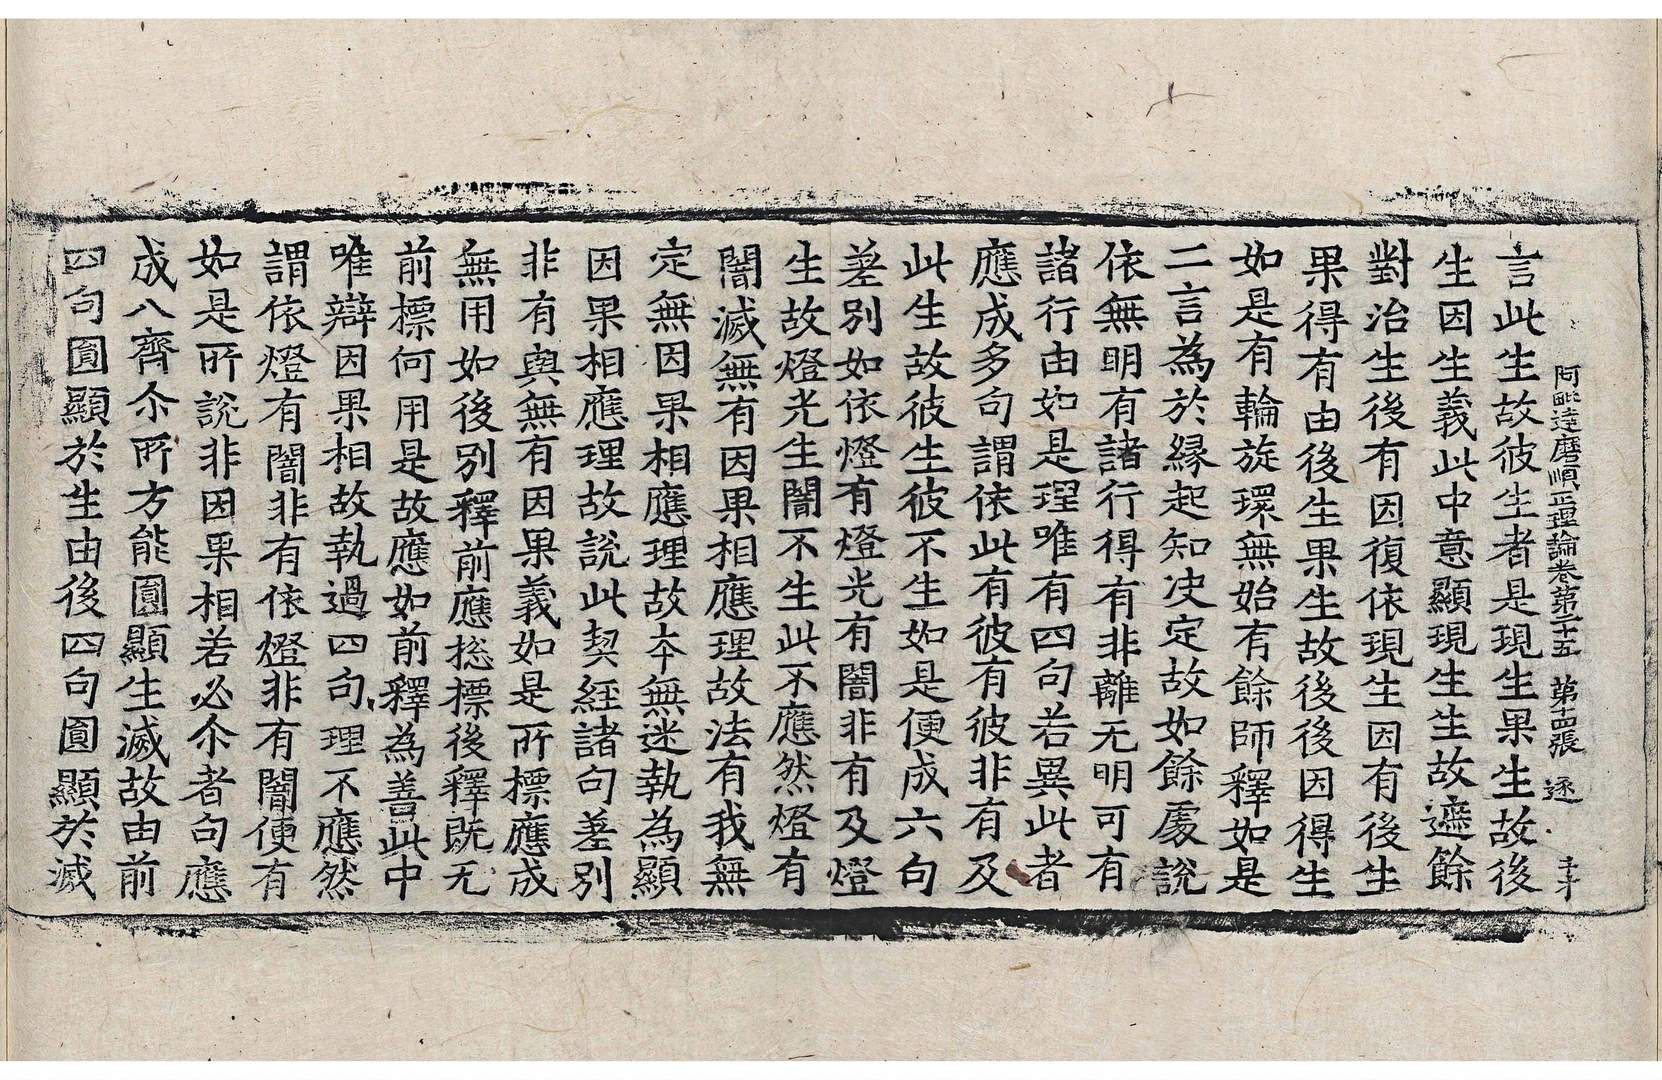 阿毗達磨順正理論卷第二十五 第十四張 逐
言此生故彼生者是現生果生故後
生因生義此中意顯現生生故遮餘
對治生後有因復依現生因有後生
果得有由後生果生故後後因得生
如是有輪旋環無始有餘師釋如是
二言為於縁起知决定故如餘處說
依無明有諸行得有非離无明可有
諸行由如是理唯有四句若異此者
應成多句謂依此有彼有彼非有及
此生故彼生彼不生如是便成六句
差別如依燈有燈光有闇非有及燈
生故燈光生闇不生此不應然燈有
闇滅無有因果相應理故法有我無
定無因果相應理故夲無迷執為顯
因果相應理故說此契經諸句差別
非有與無有因果義如是所標應成
無用如後別釋前應揔標後釋既无
前標何用是故應如前釋為善此中
唯辯因果相故執過四句理不應然
謂依燈有闇非有依燈非有闇便有
如是所說非因果相若必尒者句應
成八齊尒所方能圓顯生滅故由前
四句圓顯於生由後四句圓顯於滅